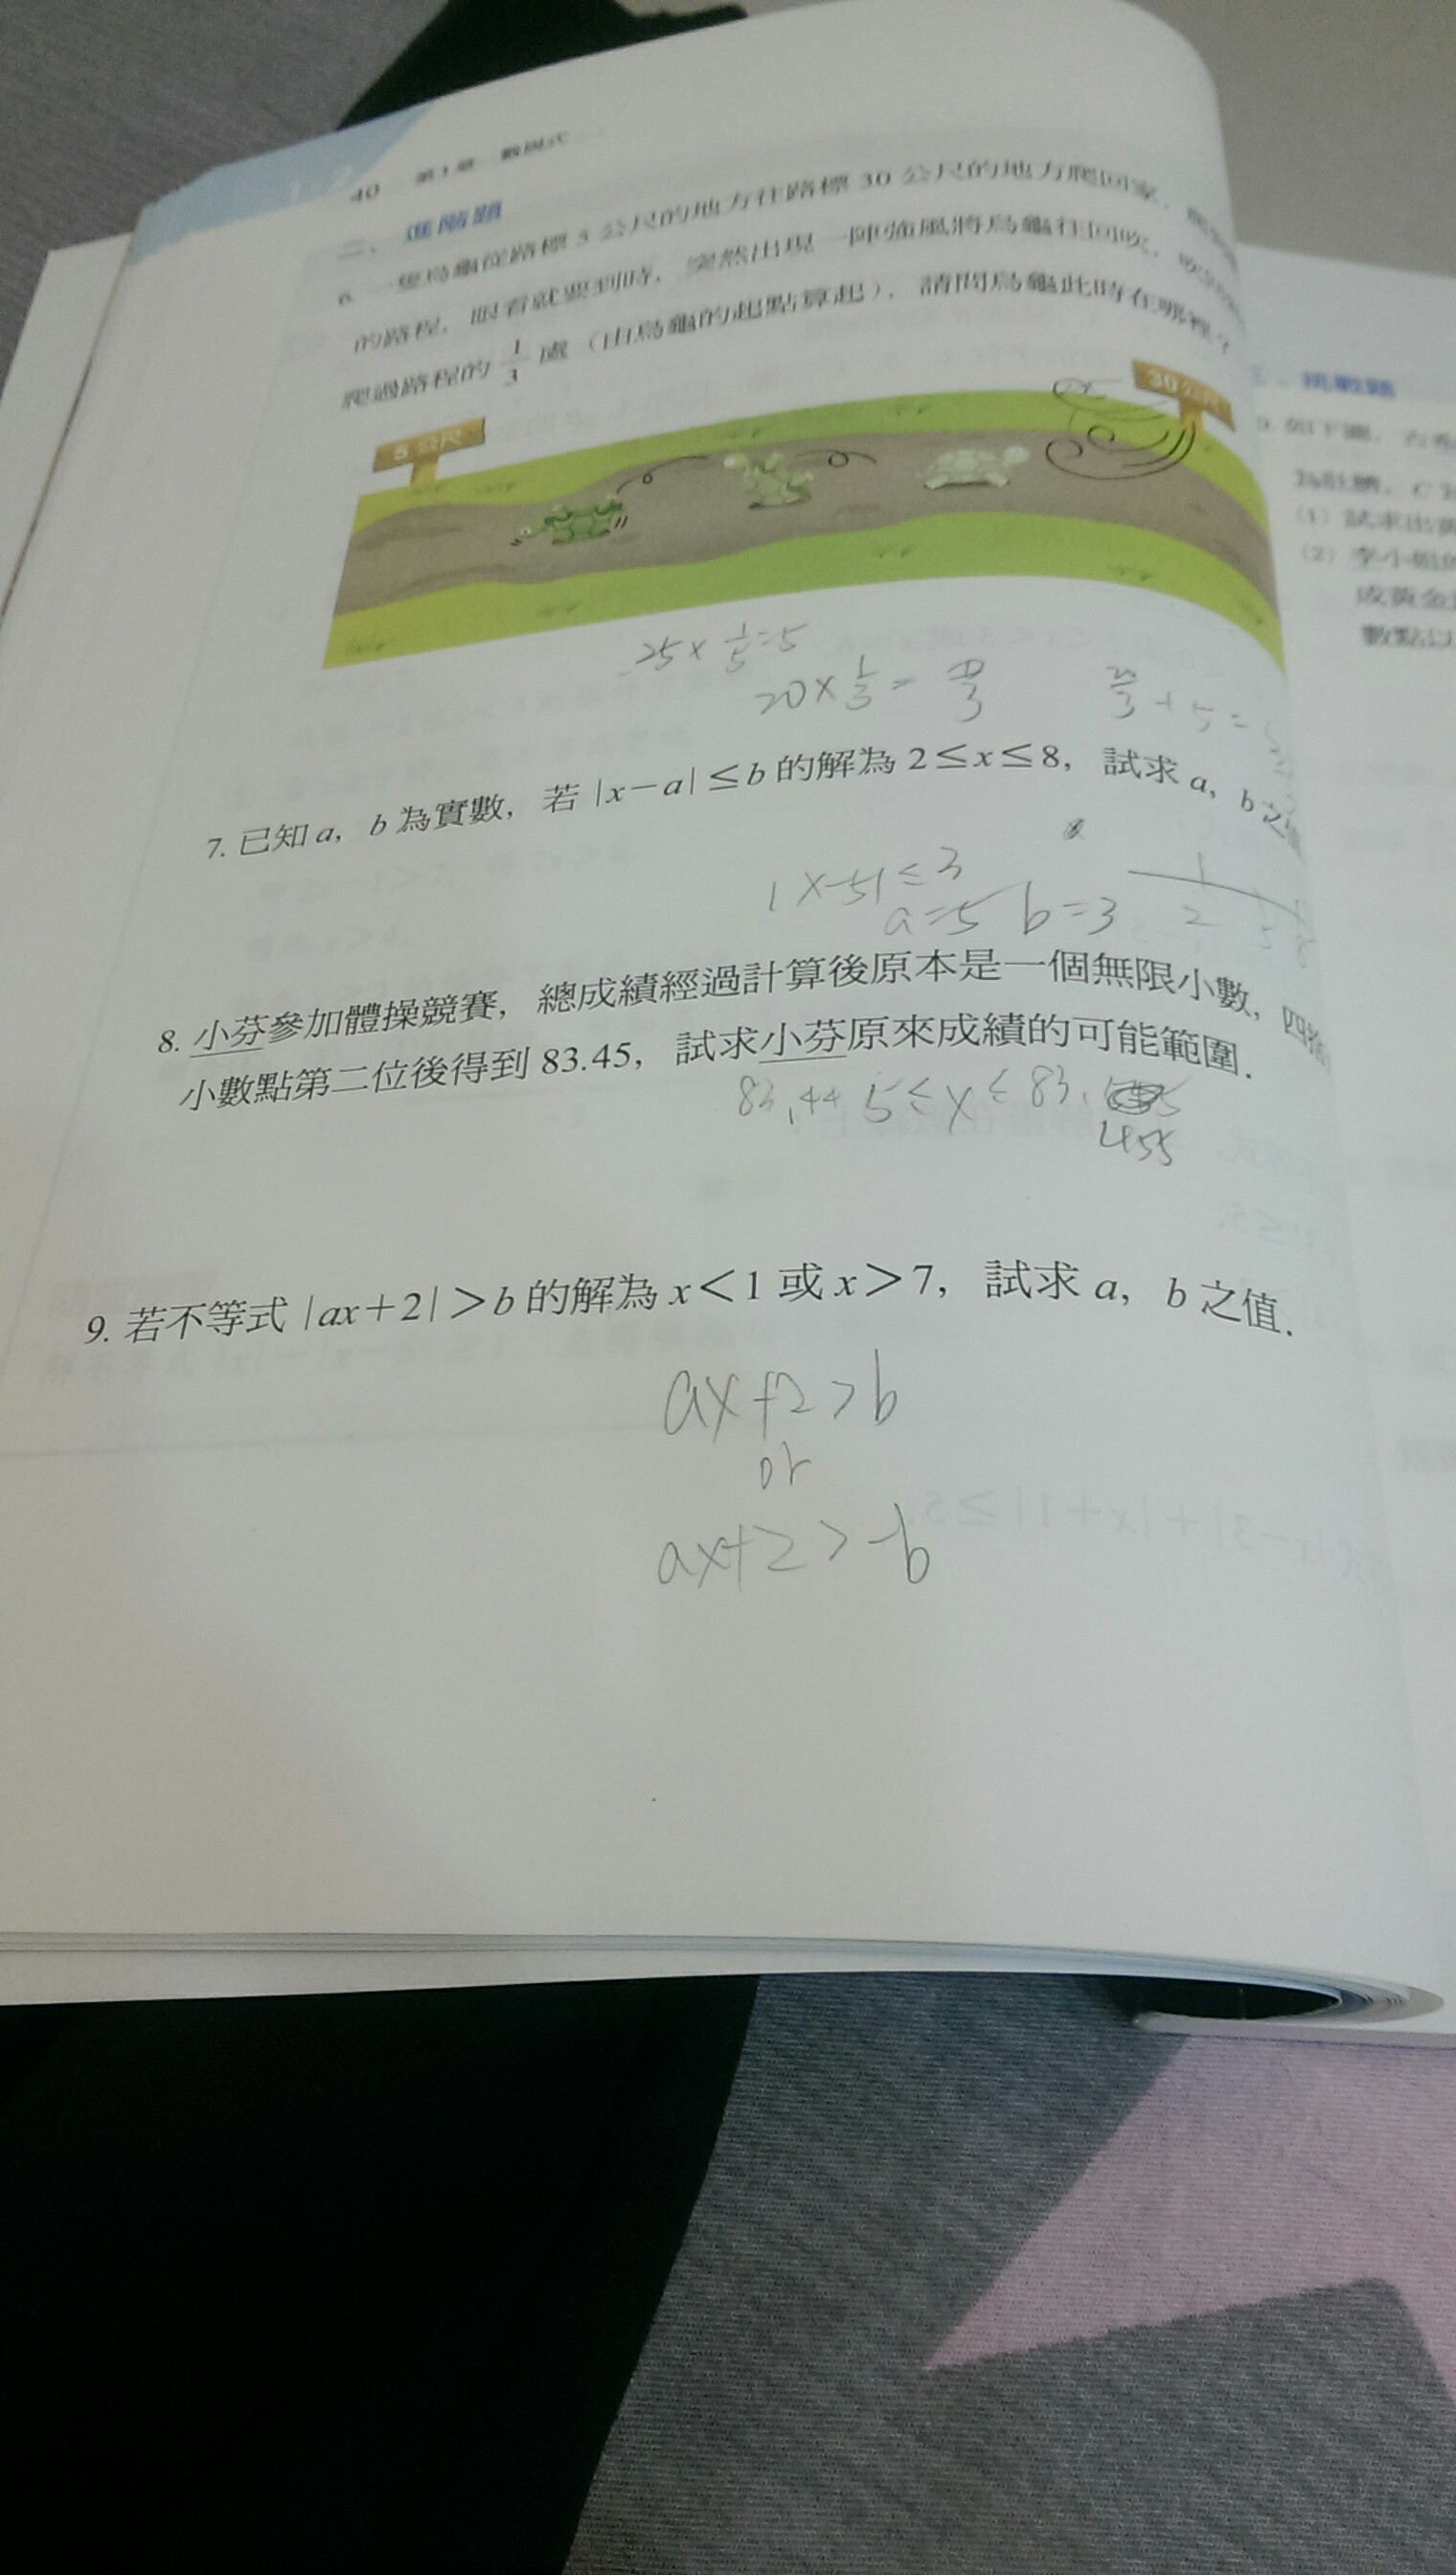 1-2
40 第1章 數與式
二、進階題
6. 一隻烏龜從路標 5 公尺的地方往路標 30 公尺的地方爬回家,
的路程, 眼看就要到時, 突然出現一陣強風將烏龜往回吹,
爬過路程的 1/3 處 (由烏龜的起點算起), 請問烏龜此時在哪裡?
5 公尺
30 公尺
25 × 1/5 = 5
20 × 1/3 =
+ 5 =
7. 已知 a, b 為實數, 若 |x-a| ≤ b 的解為 2 ≤ x ≤ 8, 試求 a, b 之值
|x-5| ≤ 3
a=5 b=3
2 5 8
8. 小芬參加體操競賽, 總成績經過計算後原本是一個無限小數, 四捨
小數點第二位後得到 83.45, 試求小芬原來成績的可能範圍.
83.445 ≤ x ≤ 83.
455
9. 若不等式 |ax+2| > b 的解為 x<1 或 x>7, 試求 a, b 之值.
ax+2 > b
or
ax+2 > -b
三、挑戰題
9. 如下圖,
為肚臍, C
(1) 試求出
(2) 李小姐
成黃金
數點以